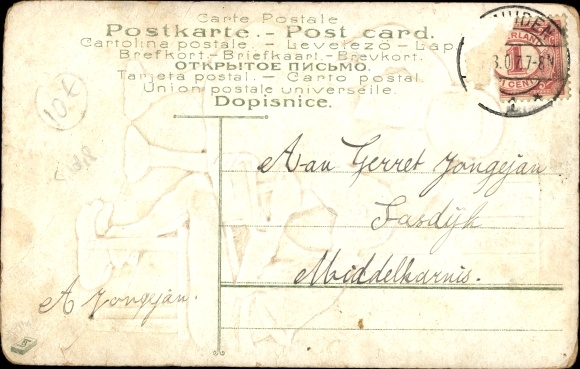 Carte Postale
Postkarte. - Post card.
Cartolina postale. - Levelező-Lap
Brefkort.- Briefkaart.- Brevkort.
ОТКРЫТОЕ ПИСЬМО.
Tarjeta postal. - Carto postal.
Union postale universelle.
Dopisnice.
UIDEN
ERLAND
1
1 CENT
7-8N
10,-
Aan Gerret Jongejan
Sasdijk
Middelharnis.
A Jongejan.